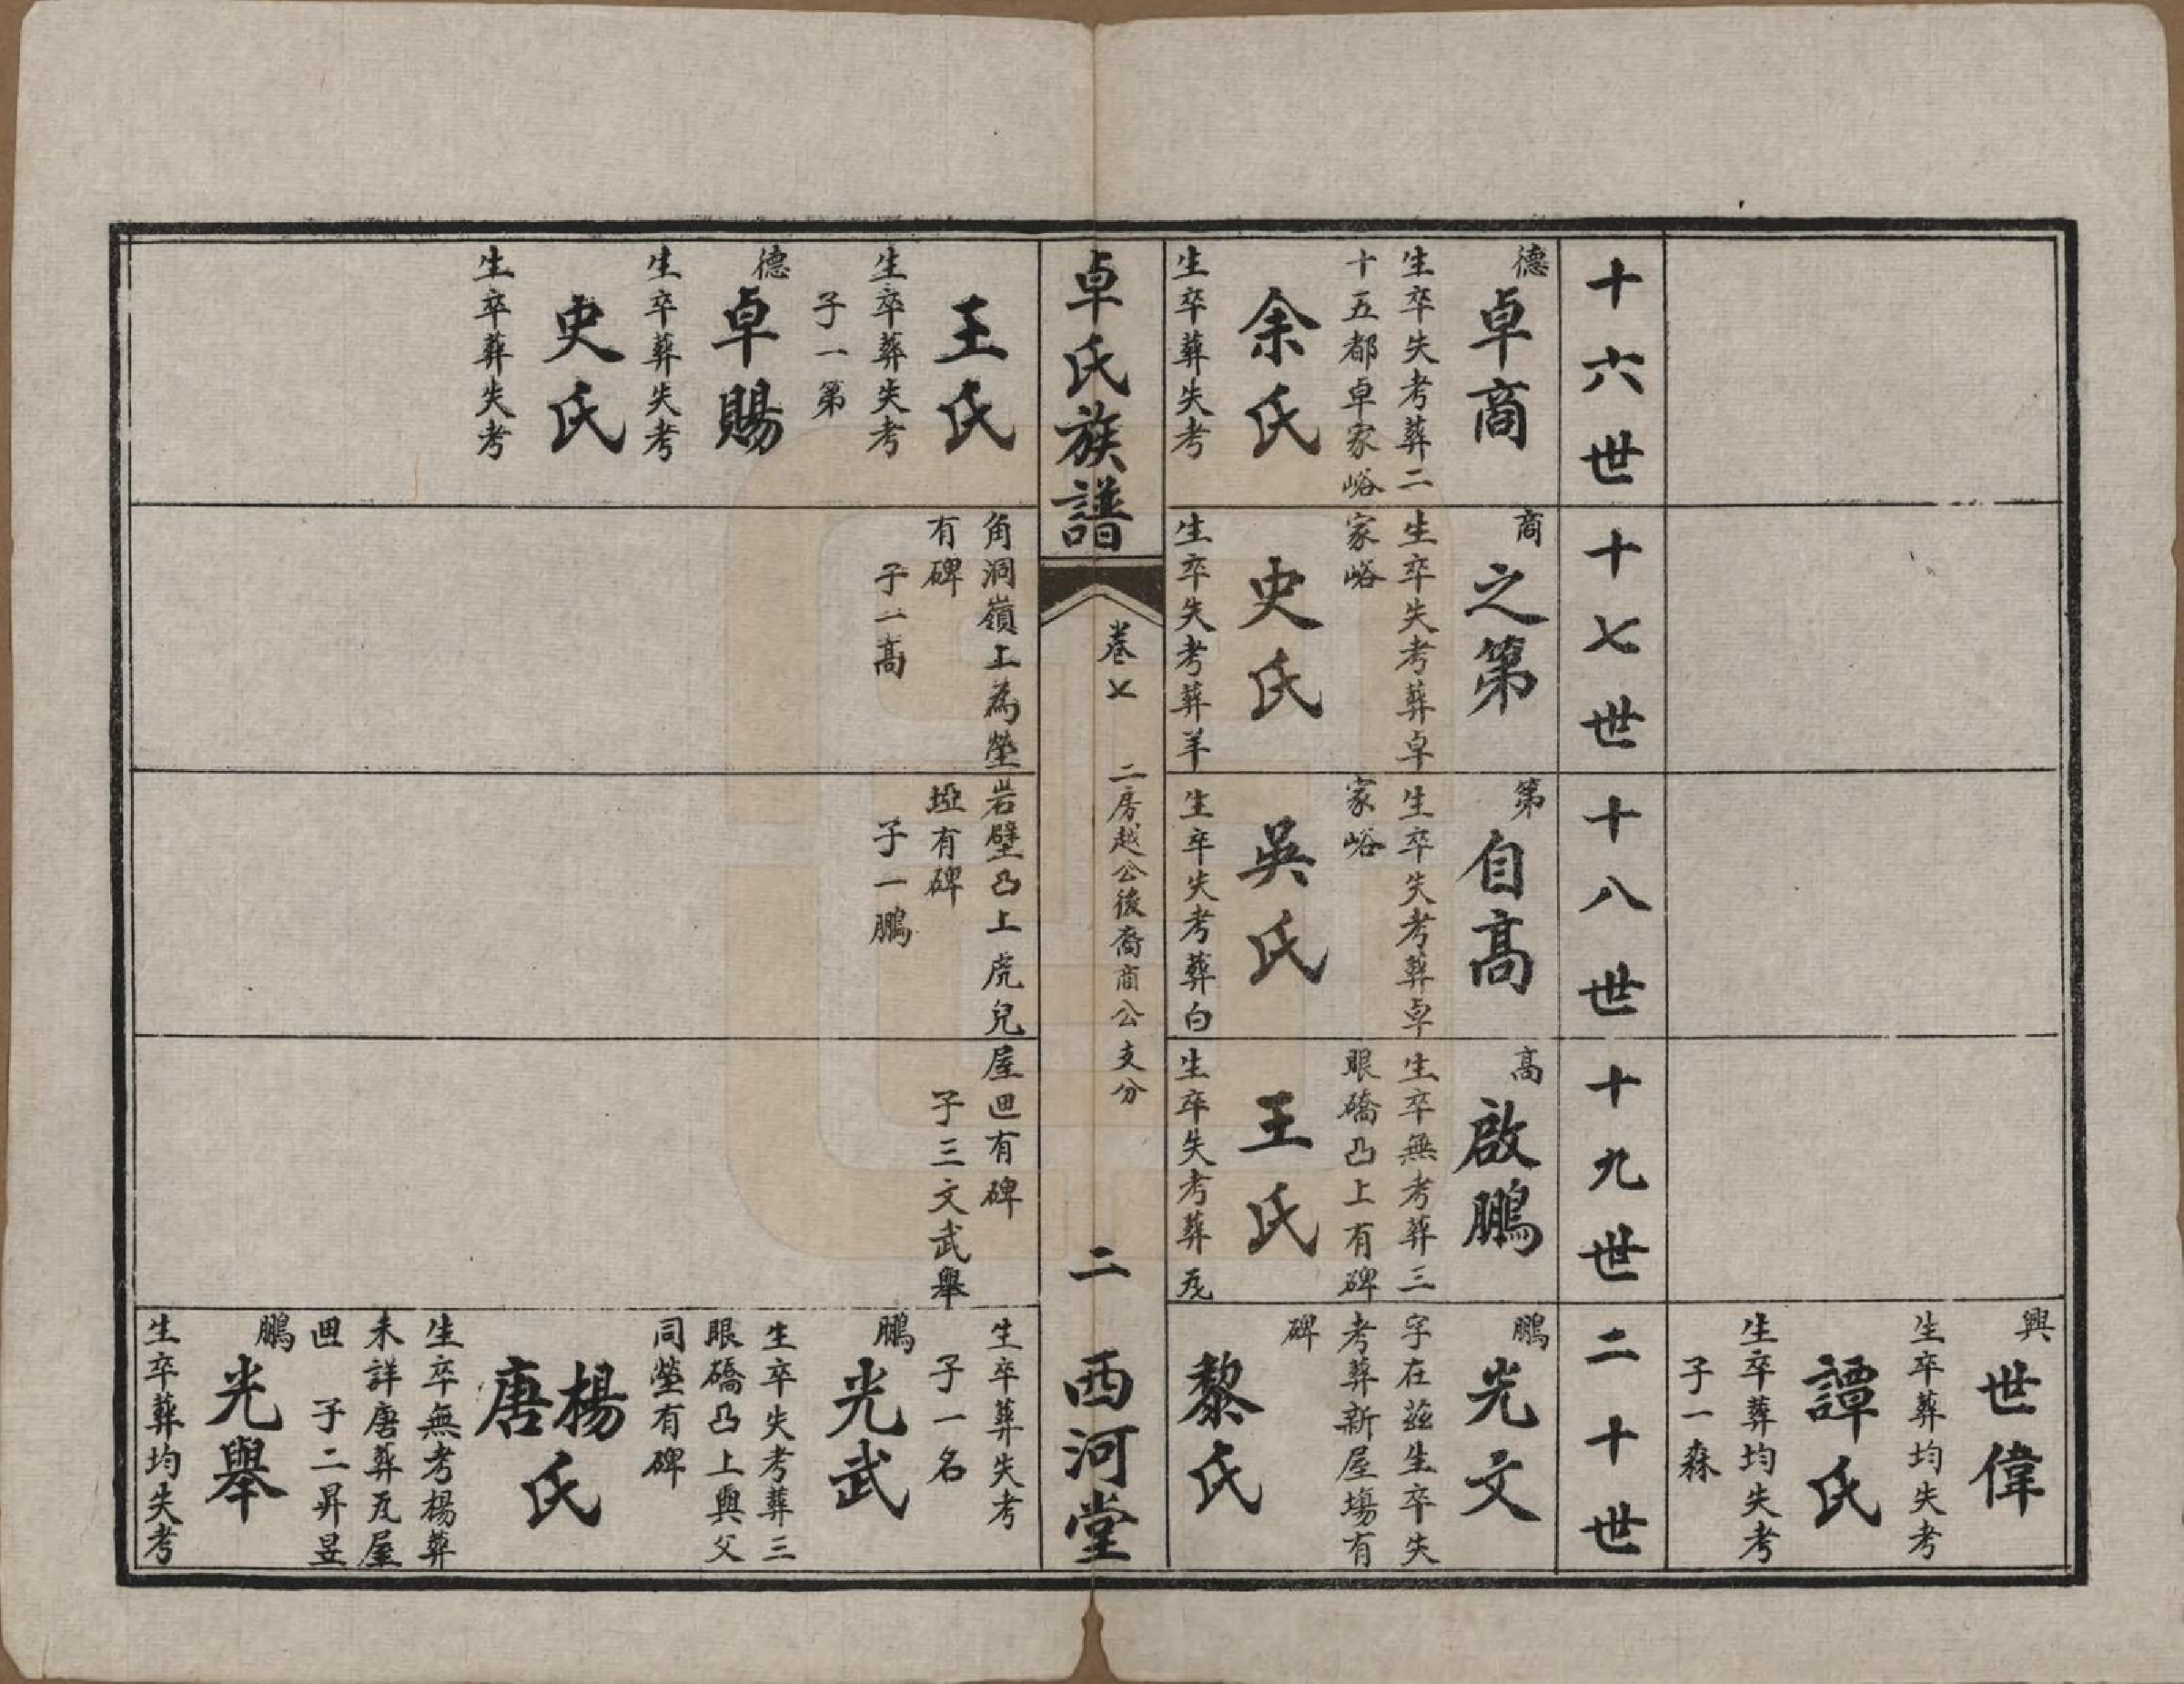 興
世偉
生卒葬均失考
譚氏
生卒葬均失考
子一森
十六世
十七世
十八世
十九世
二十世
德
卓商
生卒失考葬二
十五都卓家峪
余氏
生卒葬失考
商
之第
生卒失考葬卓
家峪
史氏
生卒失考葬羊
第
自高
生卒失考葬卓
家峪
吳氏
生卒失考葬白
高
啟鵬
生卒無考葬三
眼礄凸上有碑
王氏
生卒失考葬瓦
鵬
光文
字在茲生卒失
考葬新屋塲有
碑
黎氏
卓氏族譜
卷七
二房越公後裔商公支分
二
西河堂
王氏
生卒葬失考
子一第
德
卓賜
生卒葬失考
史氏
生卒葬失考
角洞嶺上為塋
有碑
子一高
岩壁凸上虎兒
埡有碑
子一鵬
屋𢌞有碑
子三文武舉
生卒葬失考
子一名
鵬
光武
生卒失考葬三
眼礄凸上與父
同塋有碑
楊
唐
氏
生卒無考楊葬
未詳唐葬瓦屋
𢌞
子二昇昱
鵬
光舉
生卒葬均失考